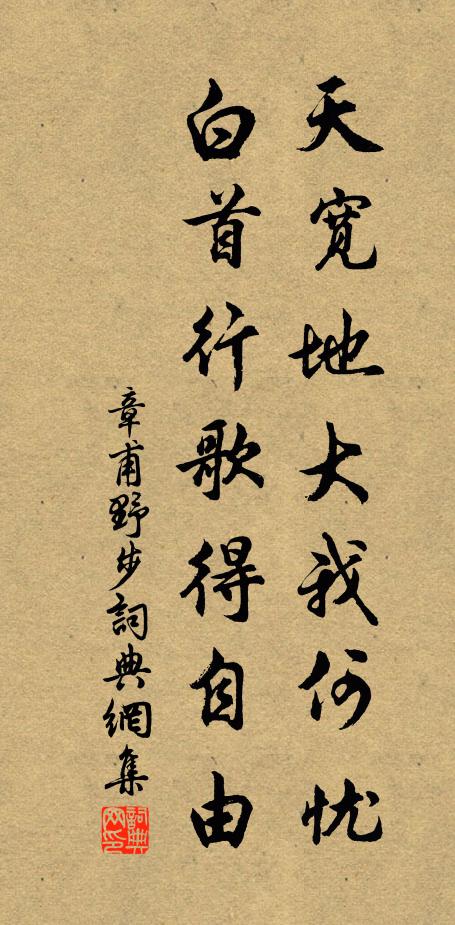 天宽地大我何忧
白首行歌得自由
章甫野步詞典網集
詞典网印